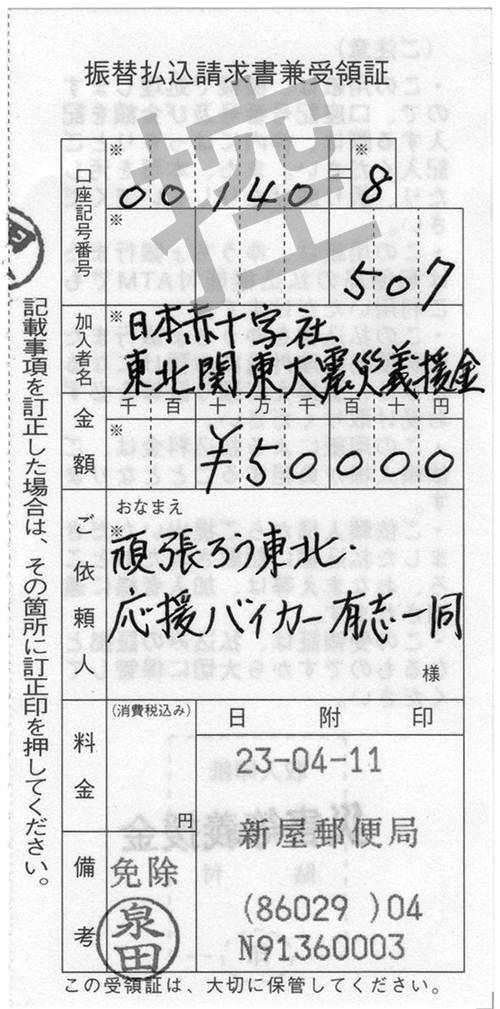 振替払込請求書兼受領証
控
口座記号番号
※ 00140=8 ※
※ 507
加入者名
※日本赤十字社
東北関東大震災義援金
金額
千百十万千百十円
※ ¥50000
ご依頼人
おなまえ
※頑張ろう東北・
応援バイカー有志一同
様
料金
(消費税込み)
円
日附印
23-04-11
新屋郵便局
(86029 )04
N91360003
備考
免除
泉田
記載事項を訂正した場合は、その箇所に訂正印を押してください。
この受領証は、大切に保管してください。